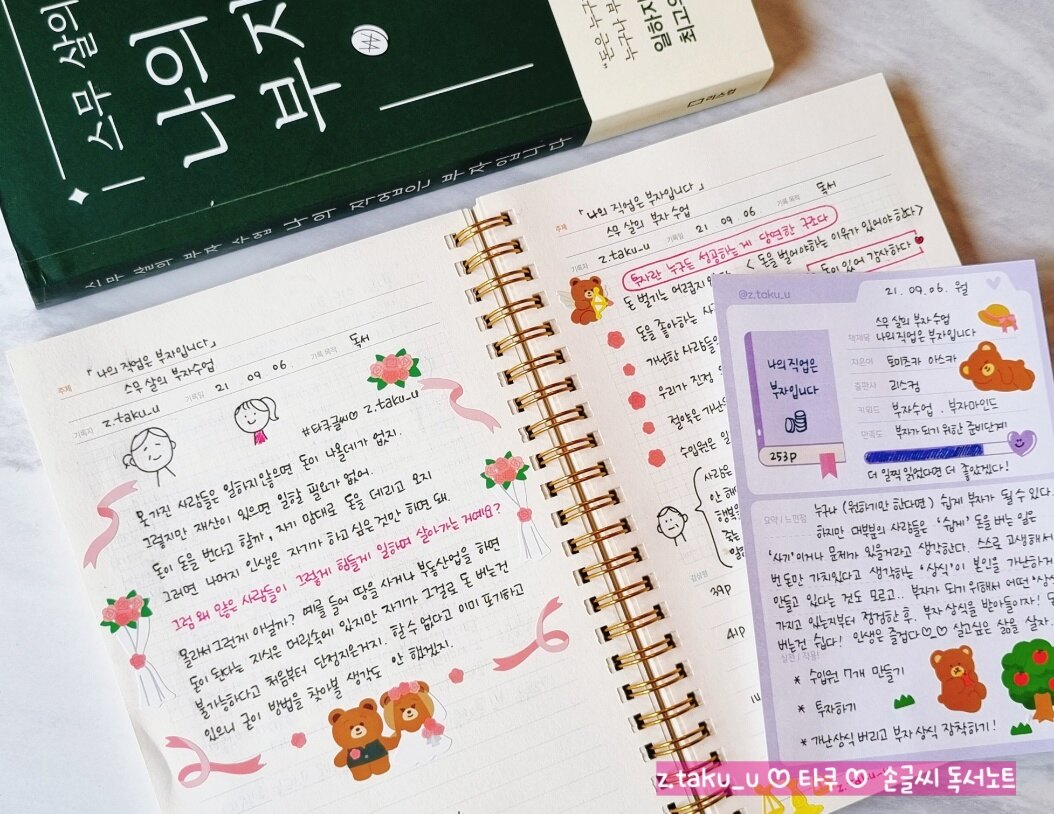 스무 살의
나의
부자
"돈은 누구
누구나 부
일하지
최고의
리스컴
스무 살의 부자 수업 나의 직업은 부자입니다
주제
「나의 직업은 부자입니다」
스무 살의 부자수업
기록자
z.taku_u
기록일
21 09 06.
기록 목적
독서
#타쿠글씨♡ z.taku_u
못가진 사람들은 일하지않으면 돈이 나올데가 없지.
그렇지만 재산이 있으면 일할 필요가 없어.
돈이 돈을 번다고 할까, 자기 맘대로 돈을 데리고 오지
그러면 나머지 인생은 자기가 하고 싶은것만 하면 돼.
그럼 왜 많은 사람들이 그렇게 힘들게 일하며 살아가는 거예요?
몰라서 그런게 아닐까? 예를 들어 땅을 사거나 부동산업을 하면
돈이 된다는 지식은 머리속에 있지만 자기가 그걸로 돈 버는건
불가능하다고 처음부터 단정지은거지. 할 수 없다고 이미 포기하고
있으니 굳이 방법을 찾아볼 생각도 안 했겠지.
주제
「나의 직업은 부자입니다」
스무 살의 부자 수업
기록자
z.taku_u
기록일
21 09 06.
기록 목적
독서
투자란 누구든 성공하는게 당연한 구조다
돈 벌기는 어렵지
<돈을 벌어야하는 이유가 있어야 한다>
돈이 있어 감사하다
돈을 좋아하는 사
가난한 사람들은
우리가 진정
절약은 가난
수입원은 일
사람은
안 해
행복
39p
41p
@z.taku_u
21.09.06. 월
책제목
스무 살의 부자수업
나의 직업은 부자입니다
지은이
토미츠카 아스카
출판사
리스컴
키워드
부자수업. 부자마인드
만족도
부자가 되기 위한 준비단계
더 일찍 읽었다면 더 좋았겠다!
나의 직업은
부자입니다
253p
요약 / 느낀점
누구나 (원하기만 한다면) 쉽게 부자가 될 수 있다
하지만 대부분의 사람들은 '쉽게' 돈을 버는 일은
'사기'이거나 문제가 있을거라고 생각한다. 스스로 고생해서
번 돈만 가치있다고 생각하는 '상식'이 본인을 가난하게
만들고 있다는 것도 모르고.. 부자가 되기 위해서 어떤 '상
가지고 있는지부터 점검한 후. 부자 상식을 받아들이자! 돈
버는건 쉽다! 인생은 즐겁다♡♡ 살고싶은 삶을 살자.
실천 / 적용!
* 수입원 7개 만들기
* 투자하기
* 가난상식 버리고 부자 상식 장착하기!
z.taku_u ♡ 타쿠 ♡ 손글씨 독서노트